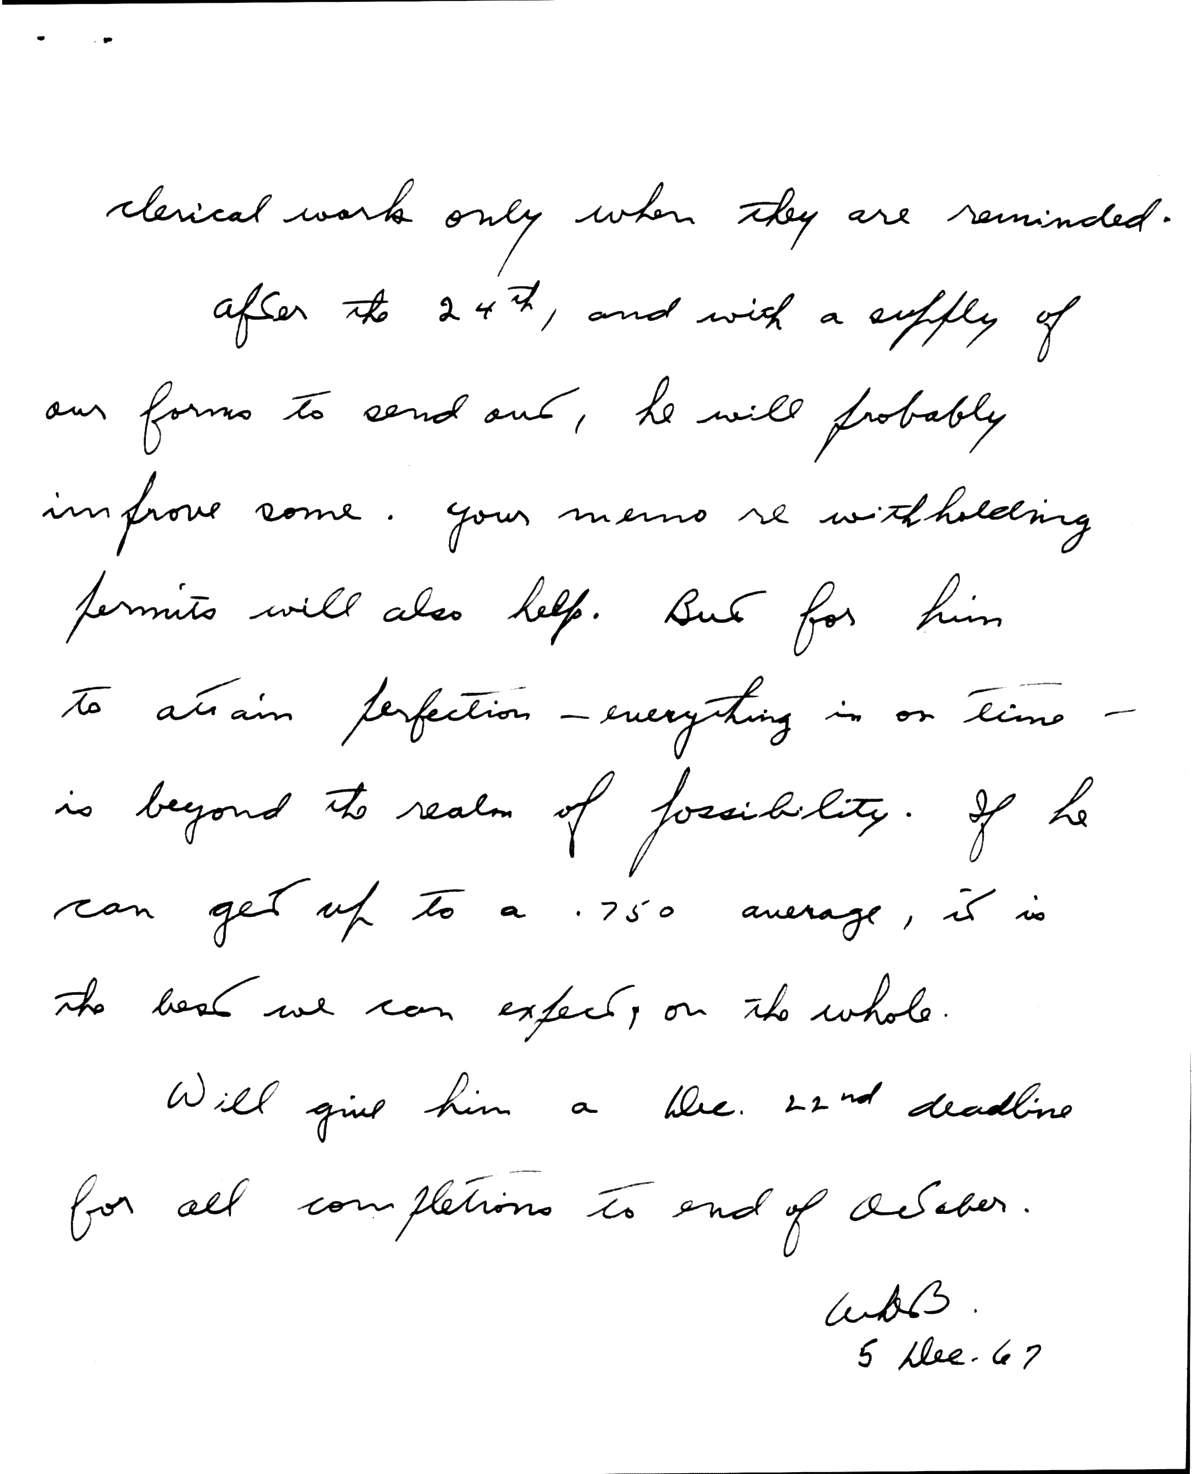 clerical work only when they are reminded.
After the 24th, and with a supply of
our forms to send out, he will probably
improve some. Your memo re withholding
permits will also help. But for him
to attain perfection - everything in on time -
is beyond the realm of possibility. If he
can get up to a .750 average, it is
the best we can expect, on the whole.
Will give him a Dec. 22nd deadline
for all completions to end of October.
WDB.
5 Dec. 67